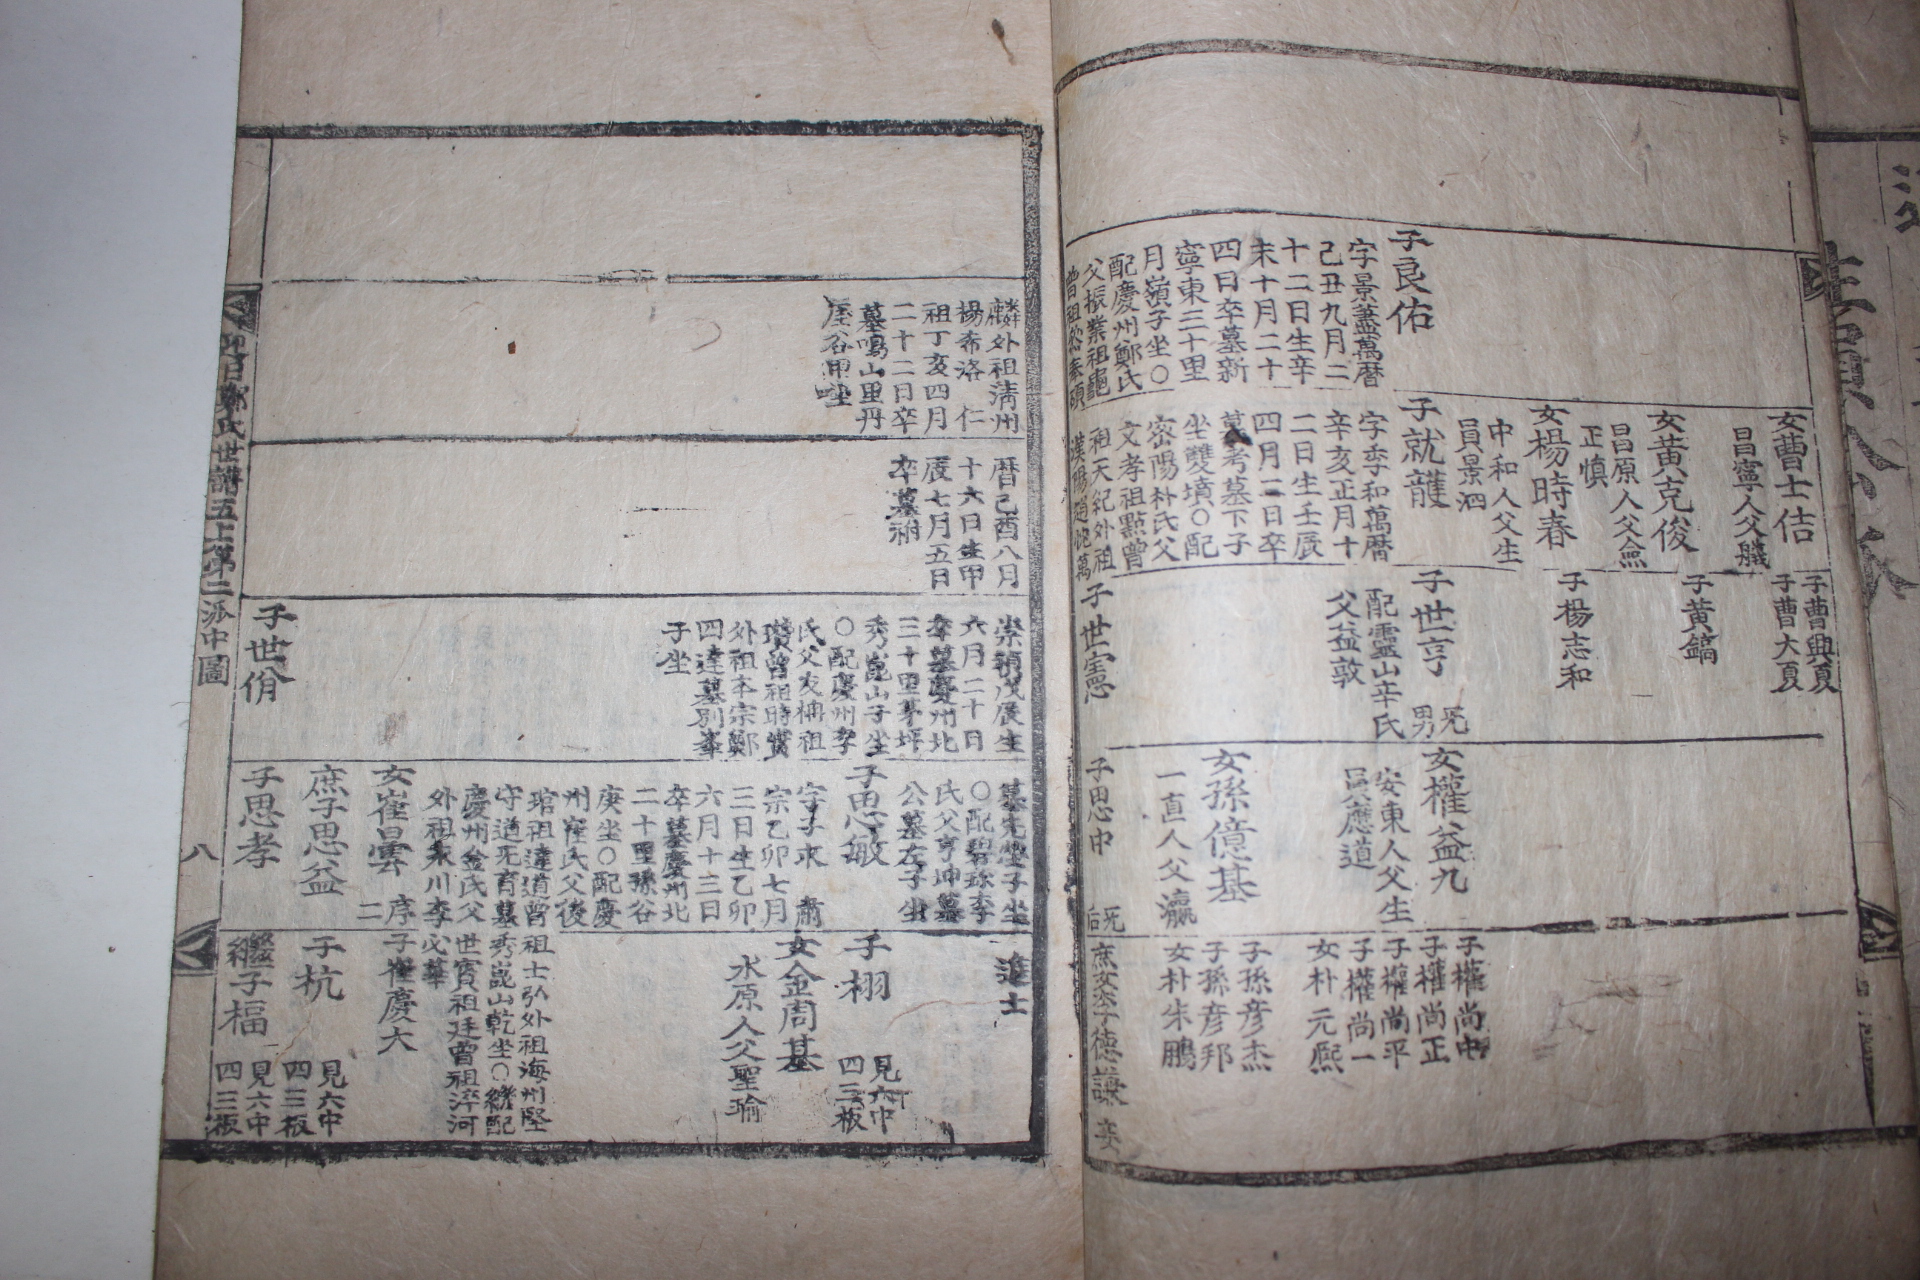 子良佑
字景盖萬曆
己丑九月二
十二日生辛
未十月二十
四日卒墓新
寧東三十里
月嶺子坐○
配慶州鄭氏
父振業祖
曾祖
女曹士佶
昌寧人父
女黃克俊
昌原人父
正慎
女楊時春
中和人父生
員景泗
子就護
字季和萬曆
辛亥正月十
二日生壬辰
四月二日卒
墓考墓下子
坐雙墳○配
密陽朴氏父
文孝祖點曾
祖天紀外祖
漢陽趙
子曹典夏
子曹大夏
子黃鎬
子楊志和
子世亨
无男
配靈山辛氏
父益敦
子世憲
女權益九
安東人父生
員應道
女孫億基
一直人父瀛
子思中
无后
子權尚中
子權尚正
子權尚平
子權尚一
女朴元熙
子孫彦杰
子孫彦邦
女朴朱鵬
庶女李德謙
麟外祖淸州
楊布洛 仁
祖丁亥四月
二十二日卒
墓鳴山里丹
崖谷甲坐
曆己酉八月
十六日生甲
辰七月五日
卒墓祔
崇禎戊辰生
六月二十日
卒墓慶州北
三十里茅坪
秀崑山子坐
○配慶州李
氏父友楠祖
瓚曾祖時實
外祖本宗鄭
四達墓別峯
子坐
子世佾
墓先塋子坐
○配碧珍李
氏父亨坤墓
公墓左子坐
子思敏
字子求 肅
宗乙卯七月
三日生乙卯
六月十三日
卒墓慶州北
二十里孫谷
庚坐○配慶
州崔氏父後
琯祖達道曾
守道无育墓
慶州金氏父
外祖永川李
女崔曇
序二
庶子思益
子思孝
進士
子栩
見六中
四三板
女金周基
水原人父聖瑜
祖士弘外祖海州堅
秀崑山乾坐○繼配
世賓祖廷曾祖淬河
必華
子崔慶大
子杭
見六中
四三板
繼子楅
見六中
四三板
迎日鄭氏世譜五上第二派中圖
八